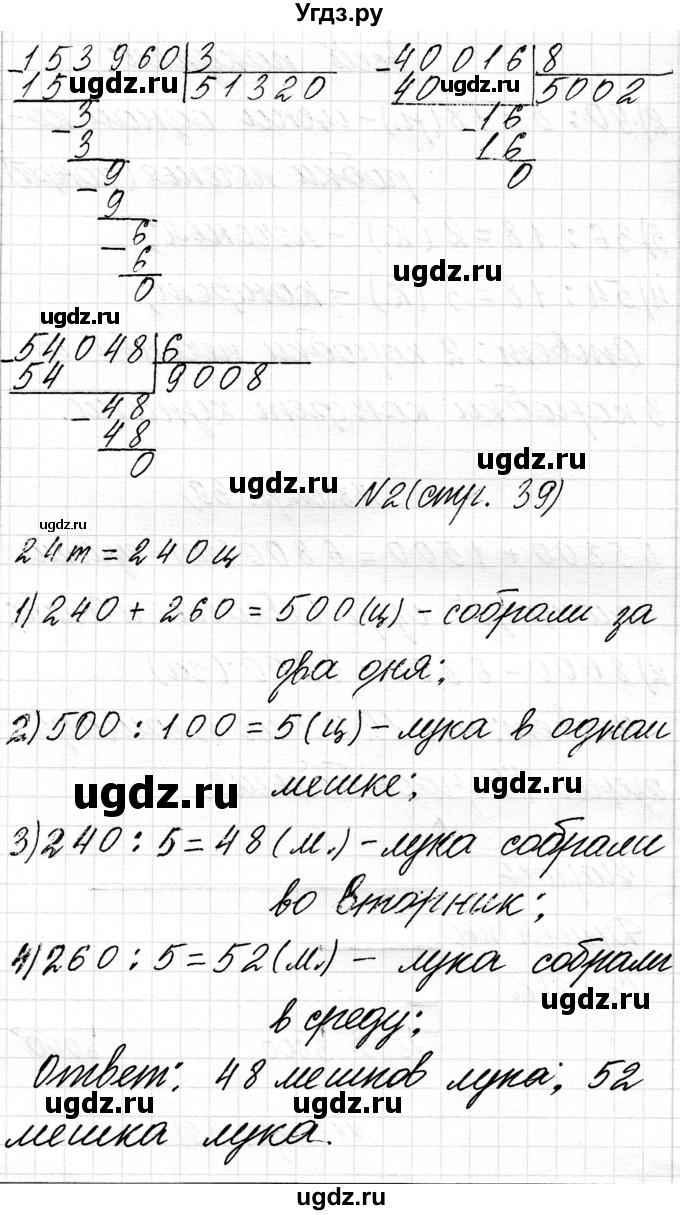 Угдз.ру
153960 | 3
15
ugdz.ru
51320
3
3
9
9
6
6
0
40016 | 8
40
ugdz.ru
5002
16
16
0
ugdz.ru
ugdz.ru
54048 | 6
54
9008
48
48
0
ugdz.ru
ugdz.ru
N2 (стр. 39)
ugdz.ru
24т = 240ц
1) 240 + 260 = 500 (ц) - собрали за
два дня;
2) 500 : 100 = 5 (ц) - лука в одном
мешке;
ugdz.ru
ugdz.ru
3) 240 : 5 = 48 (м.) - лука собрали
во вторник;
4) 260 : 5 = 52 (м.) - лука собрали
ugdz.ru
в среду;
Ответ: 48 мешков лука; 52
ugdz.ru
ugdz.ru
мешка лука.
ugdz.ru